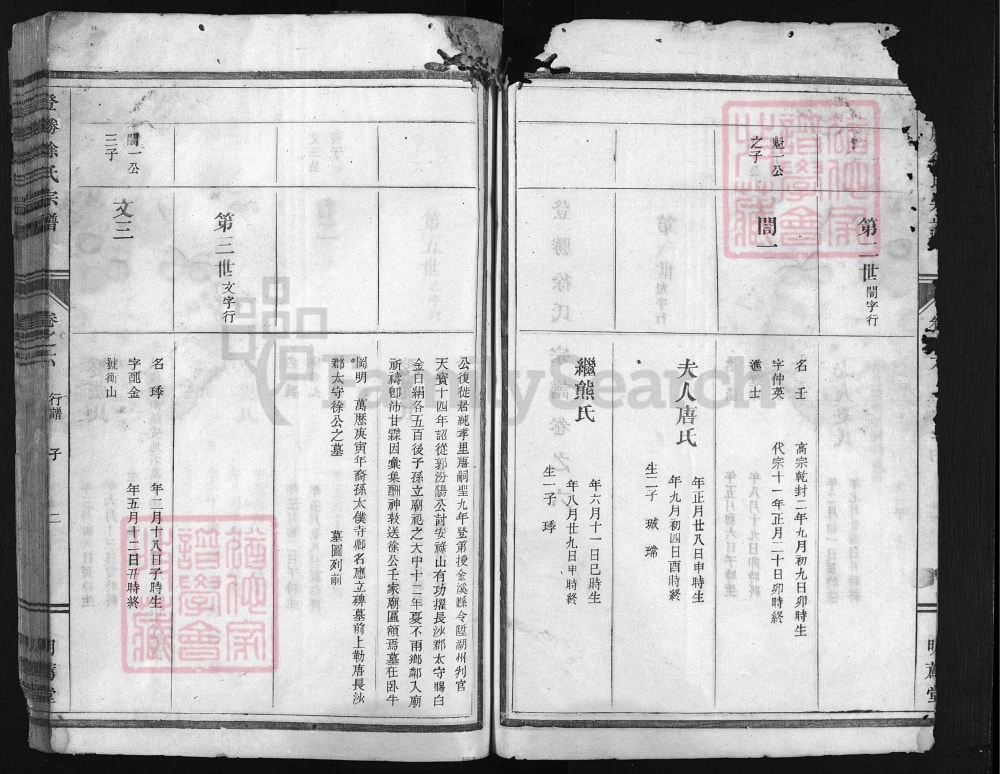 第二世 闇字行
魁一公
之子
闇一
名壬 高宗乾封二年九月初九日卯時生
字仲英 代宗十一年正月二十日卯時終
進士
夫人唐氏
年正月廿八日申時生
年九月初四日酉時終
生二子 璈 璫
繼熊氏
年六月十一日巳時生
年八月廿九日申時終
生一子 琫
公復徙君純孝里唐嗣聖九年登第授金溪縣令陞湖州判官
天寶十四年詔從郭汾陽公討安祿山有功擢長沙郡太守賜白
金白絹各五百後子孫立廟祀之大中十二年夏不雨鄉鄰入廟
祈禱卽沛甘霖因彙集酬神敕送徐公壬家廟區額焉墓在卧牛
岡明 萬歷庚寅年裔孫太僕寺卿名應立碑墓前上勒唐長沙
郡太守徐公之墓 墓圖列前
第三世 文字行
闇一公
三子
文三
名琫 年二月十八日子時生
字韶金 年五月十二日丑時終
號衡山
登勝徐氏宗譜
卷之六 行譜 子 二
明蕎堂
FamilySearch